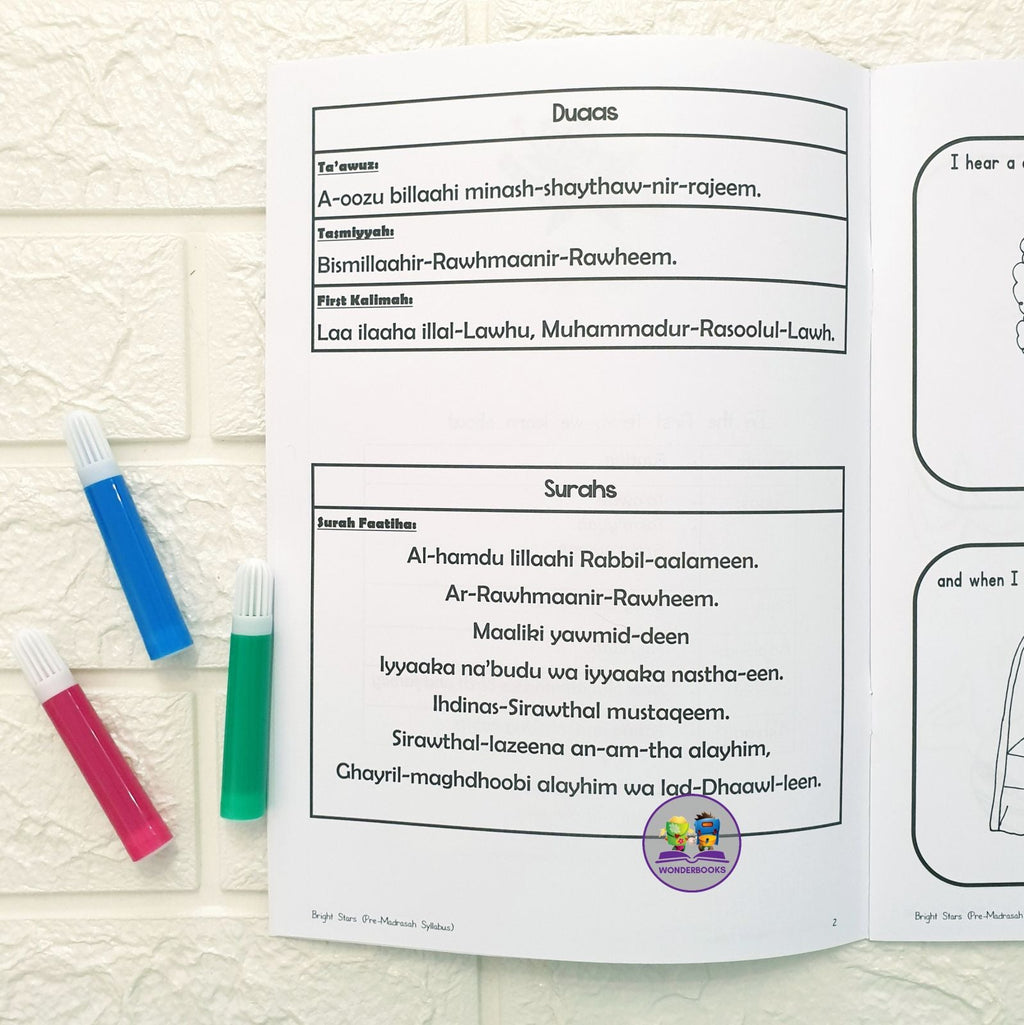 Duaas
Ta'awuz:
A-oozu billaahi minash-shaythaw-nir-rajeem.
Tasmiyyah:
Bismillaahir-Rawhmaanir-Rawheem.
First Kalimah:
Laa ilaaha illal-Lawhu, Muhammadur-Rasoolul-Lawh.
Surahs
Surah Faatiha:
Al-hamdu lillaahi Rabbil-aalameen.
Ar-Rawhmaanir-Rawheem.
Maaliki yawmid-deen
Iyyaaka na'budu wa iyyaaka nastha-een.
Ihdinas-Sirawthal mustaqeem.
Sirawthal-lazeena an-am-tha alayhim,
Ghayril-maghdhoobi alayhim wa lad-Dhaawl-leen.
WONDERBOOKS
Bright Stars (Pre-Madrasah Syllabus)
2
I hear a
and when I
Bright Stars (Pre-Madrasah